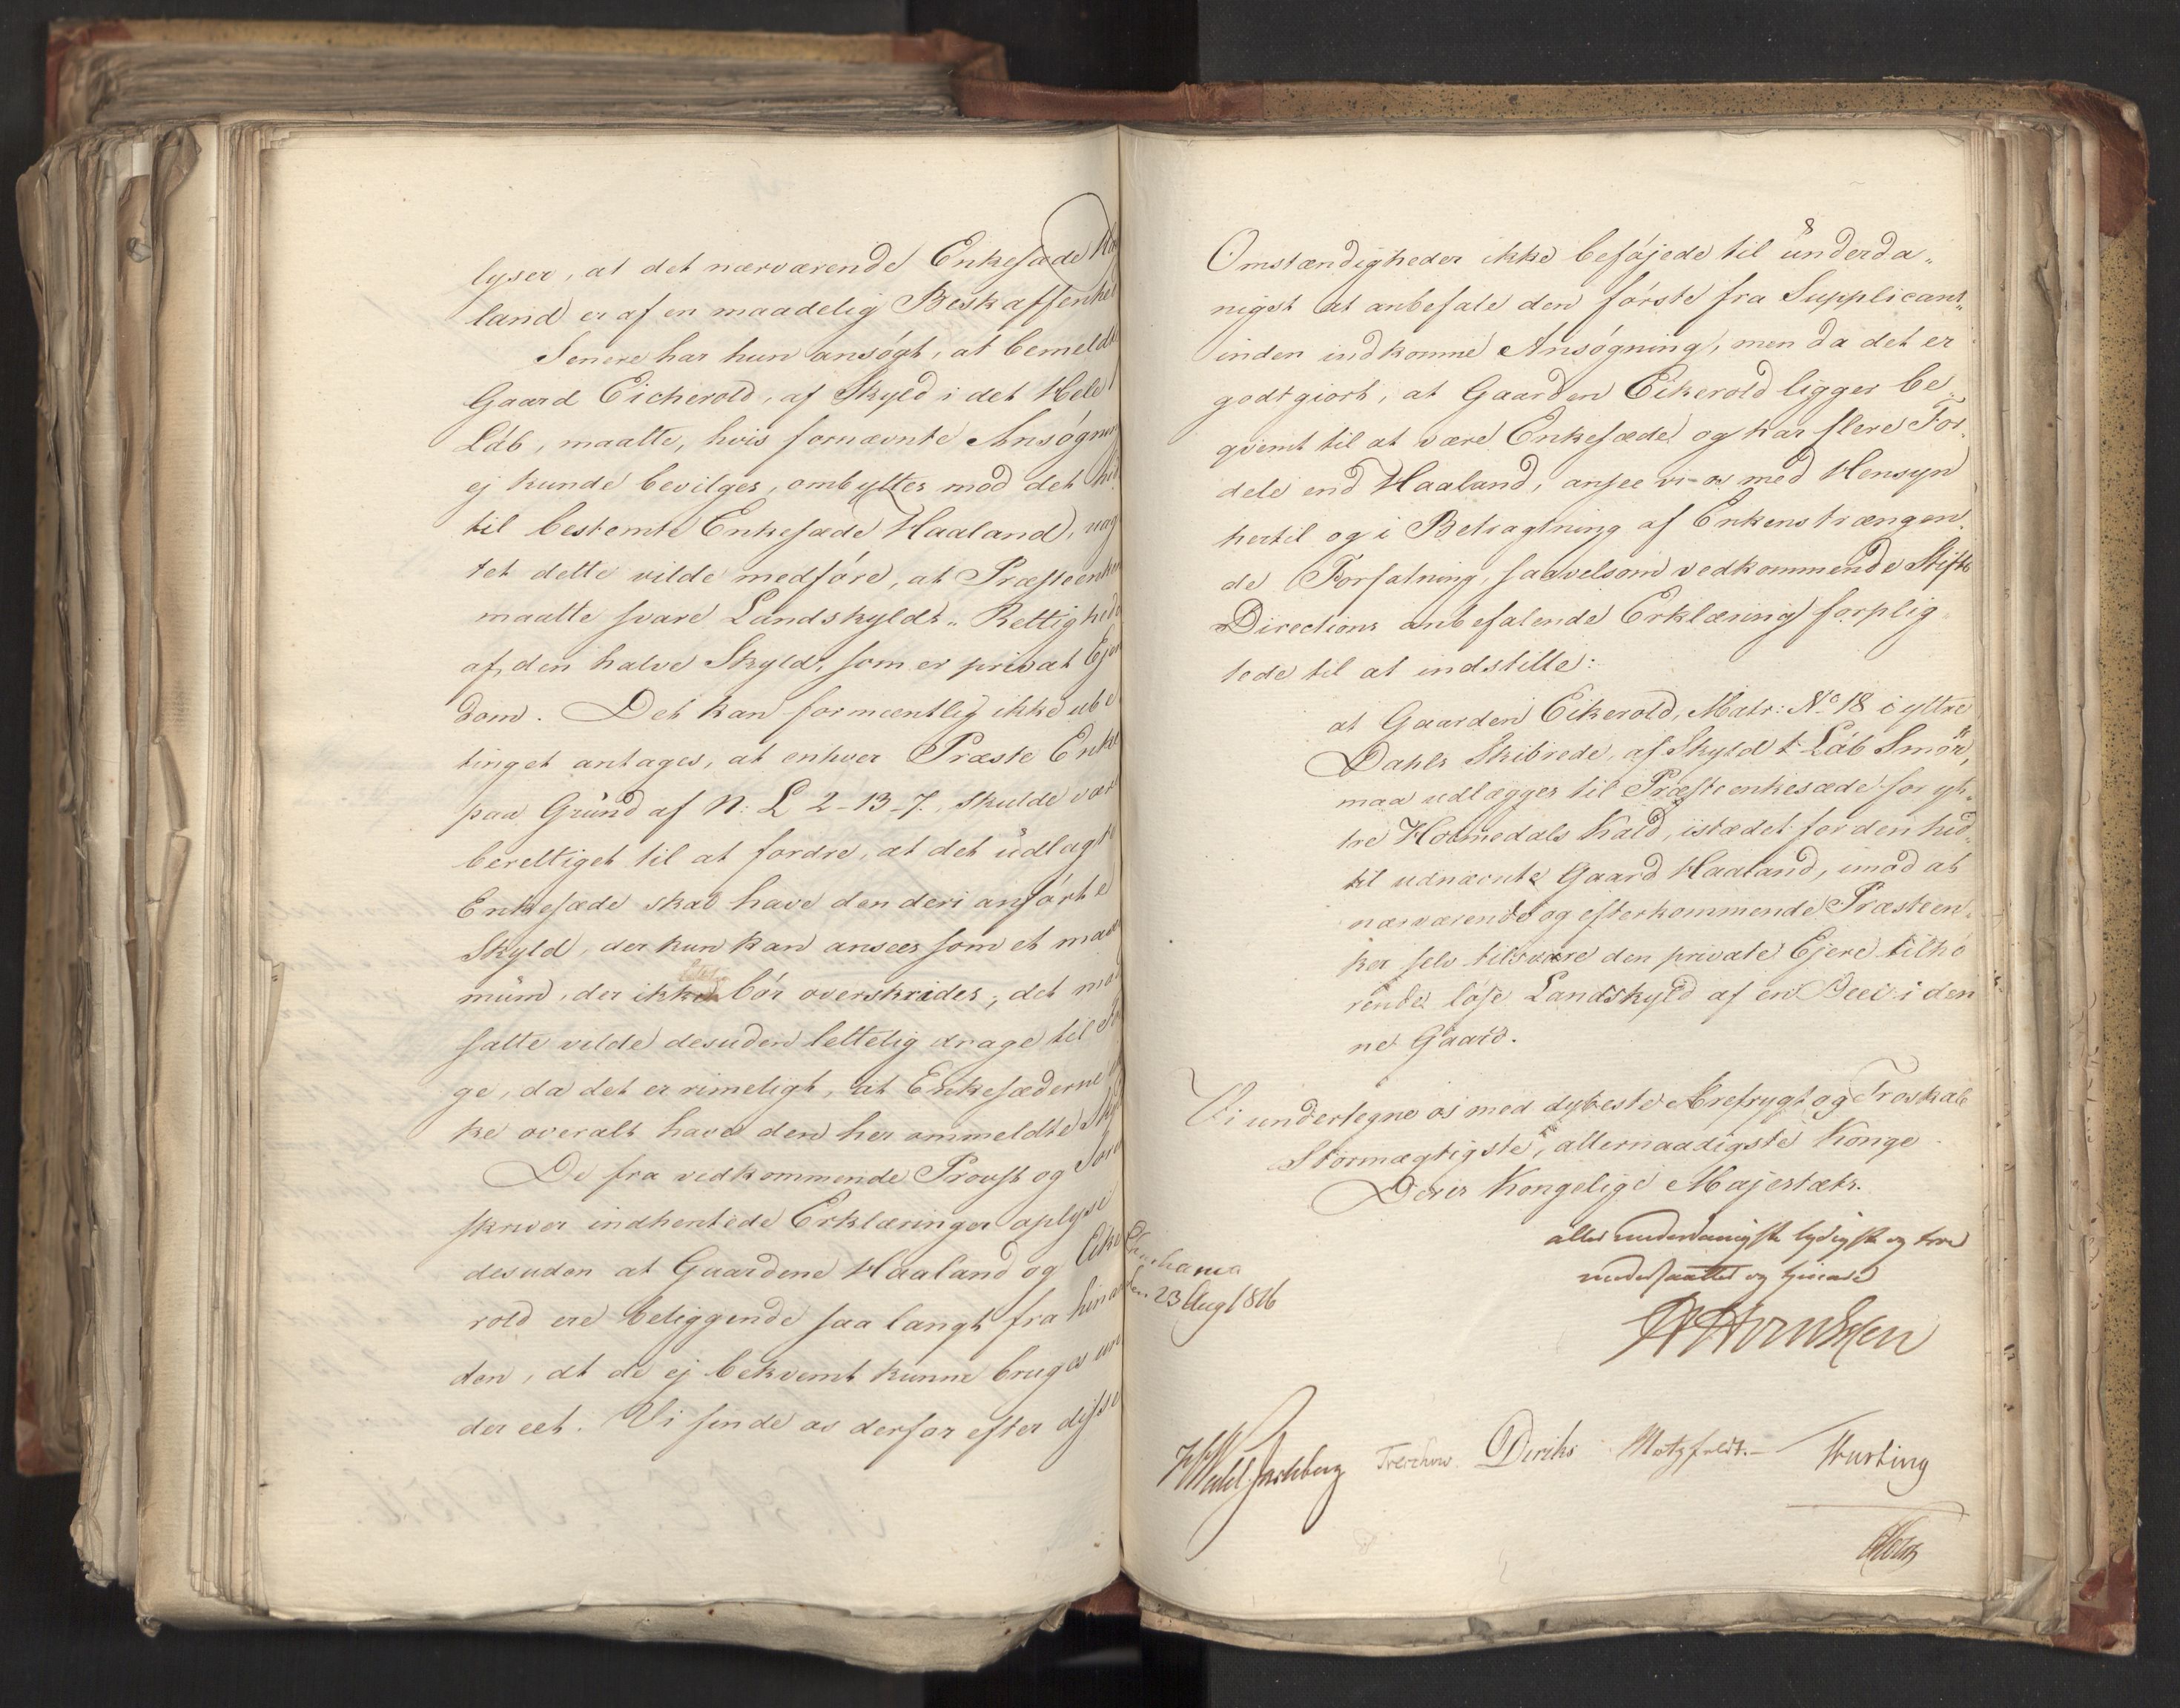 lyser, at det nærværende Enkesæde Haa
land er af en maadelig Beskaffenhed
Senere har hun ansøgt, at bemeldte
Gaard Eicherold, af Skyld i det Hele 1
Løb, maatte, hvis fornævnte Ansøgning
ej kunde bevilges, ombyttes mod det hid
til bestemte Enkesæde Haaland, uag
tet dette vilde medføre, at Præsteenken
maatte svare Landskylds- Rettigheder
af den halve Skyld, som er privat Ejen
dom. Det kan formeentlig ikke ube
tinget antages, at enhver Præste Enke
paa Grund af N. L 2-13-7. skulde være
berettiget til at fordre, at det udlagte
Enkesæde skal have den deri anførte
Skyld, der kun kan ansees som et maxi
mum, der ikke bør overskrides; det mod
satte vilde desuden lettelig drage til Føl
ge, da det er rimeligt, at Enkesæderne ik
ke overalt have den her ommeldte Skyld
De fra vedkommende Provst og Soren
skriver indhentede Erklæringer oplyse
desuden at Gaardene Haaland og Eike
rold ere beliggende saa langt fra hinan
den, at de ej bekvemt kunne bruges un
der eet. Vi finde os derfor efter disse
8
Omstændigheder ikke beføjede til underda-
nigst at anbefale den første fra Supplicant-
inden indkomne Ansøgning, men da det er
godtgiort, at Gaarden Eikerold ligger be-
qvemt til at være Enkesæde og har flere For-
dele end Haaland, ansee vi os med Hensyn
hertil og i Betragtning af Enkens trængen-
de Forfatning, saavelsom vedkommende Stifts
Directions anbefalende Erklæring forplig-
tede til at indstille:
at Gaarden Eikerold, Matr: No 18 i yttre
Dahls Skibrede, af Skyld 1 Løb Smør,
maa udlægges til Præsteenkesæde for yt-
tre Holmedals Kald, istædet for den hid-
til udnævnte Gaard Haaland, imod at
nærværende og efterkommende Præsteen-
ker selv tilsvare den private Ejere tilhø
rende løse Landskyld af en Deel i den
ne Gaard.
Vi undertegne os med dybeste Ærefrygt og Troskab
Stormægtigste, allernaadigste Konge
Deres Kongelige Majestæts.
Christiania
den 23 Aug 1816
allerunderdanigste lydigste og troe
undersaatter og tjenere
Wedel Jarlsberg Treschow Diriks Motzfeldt